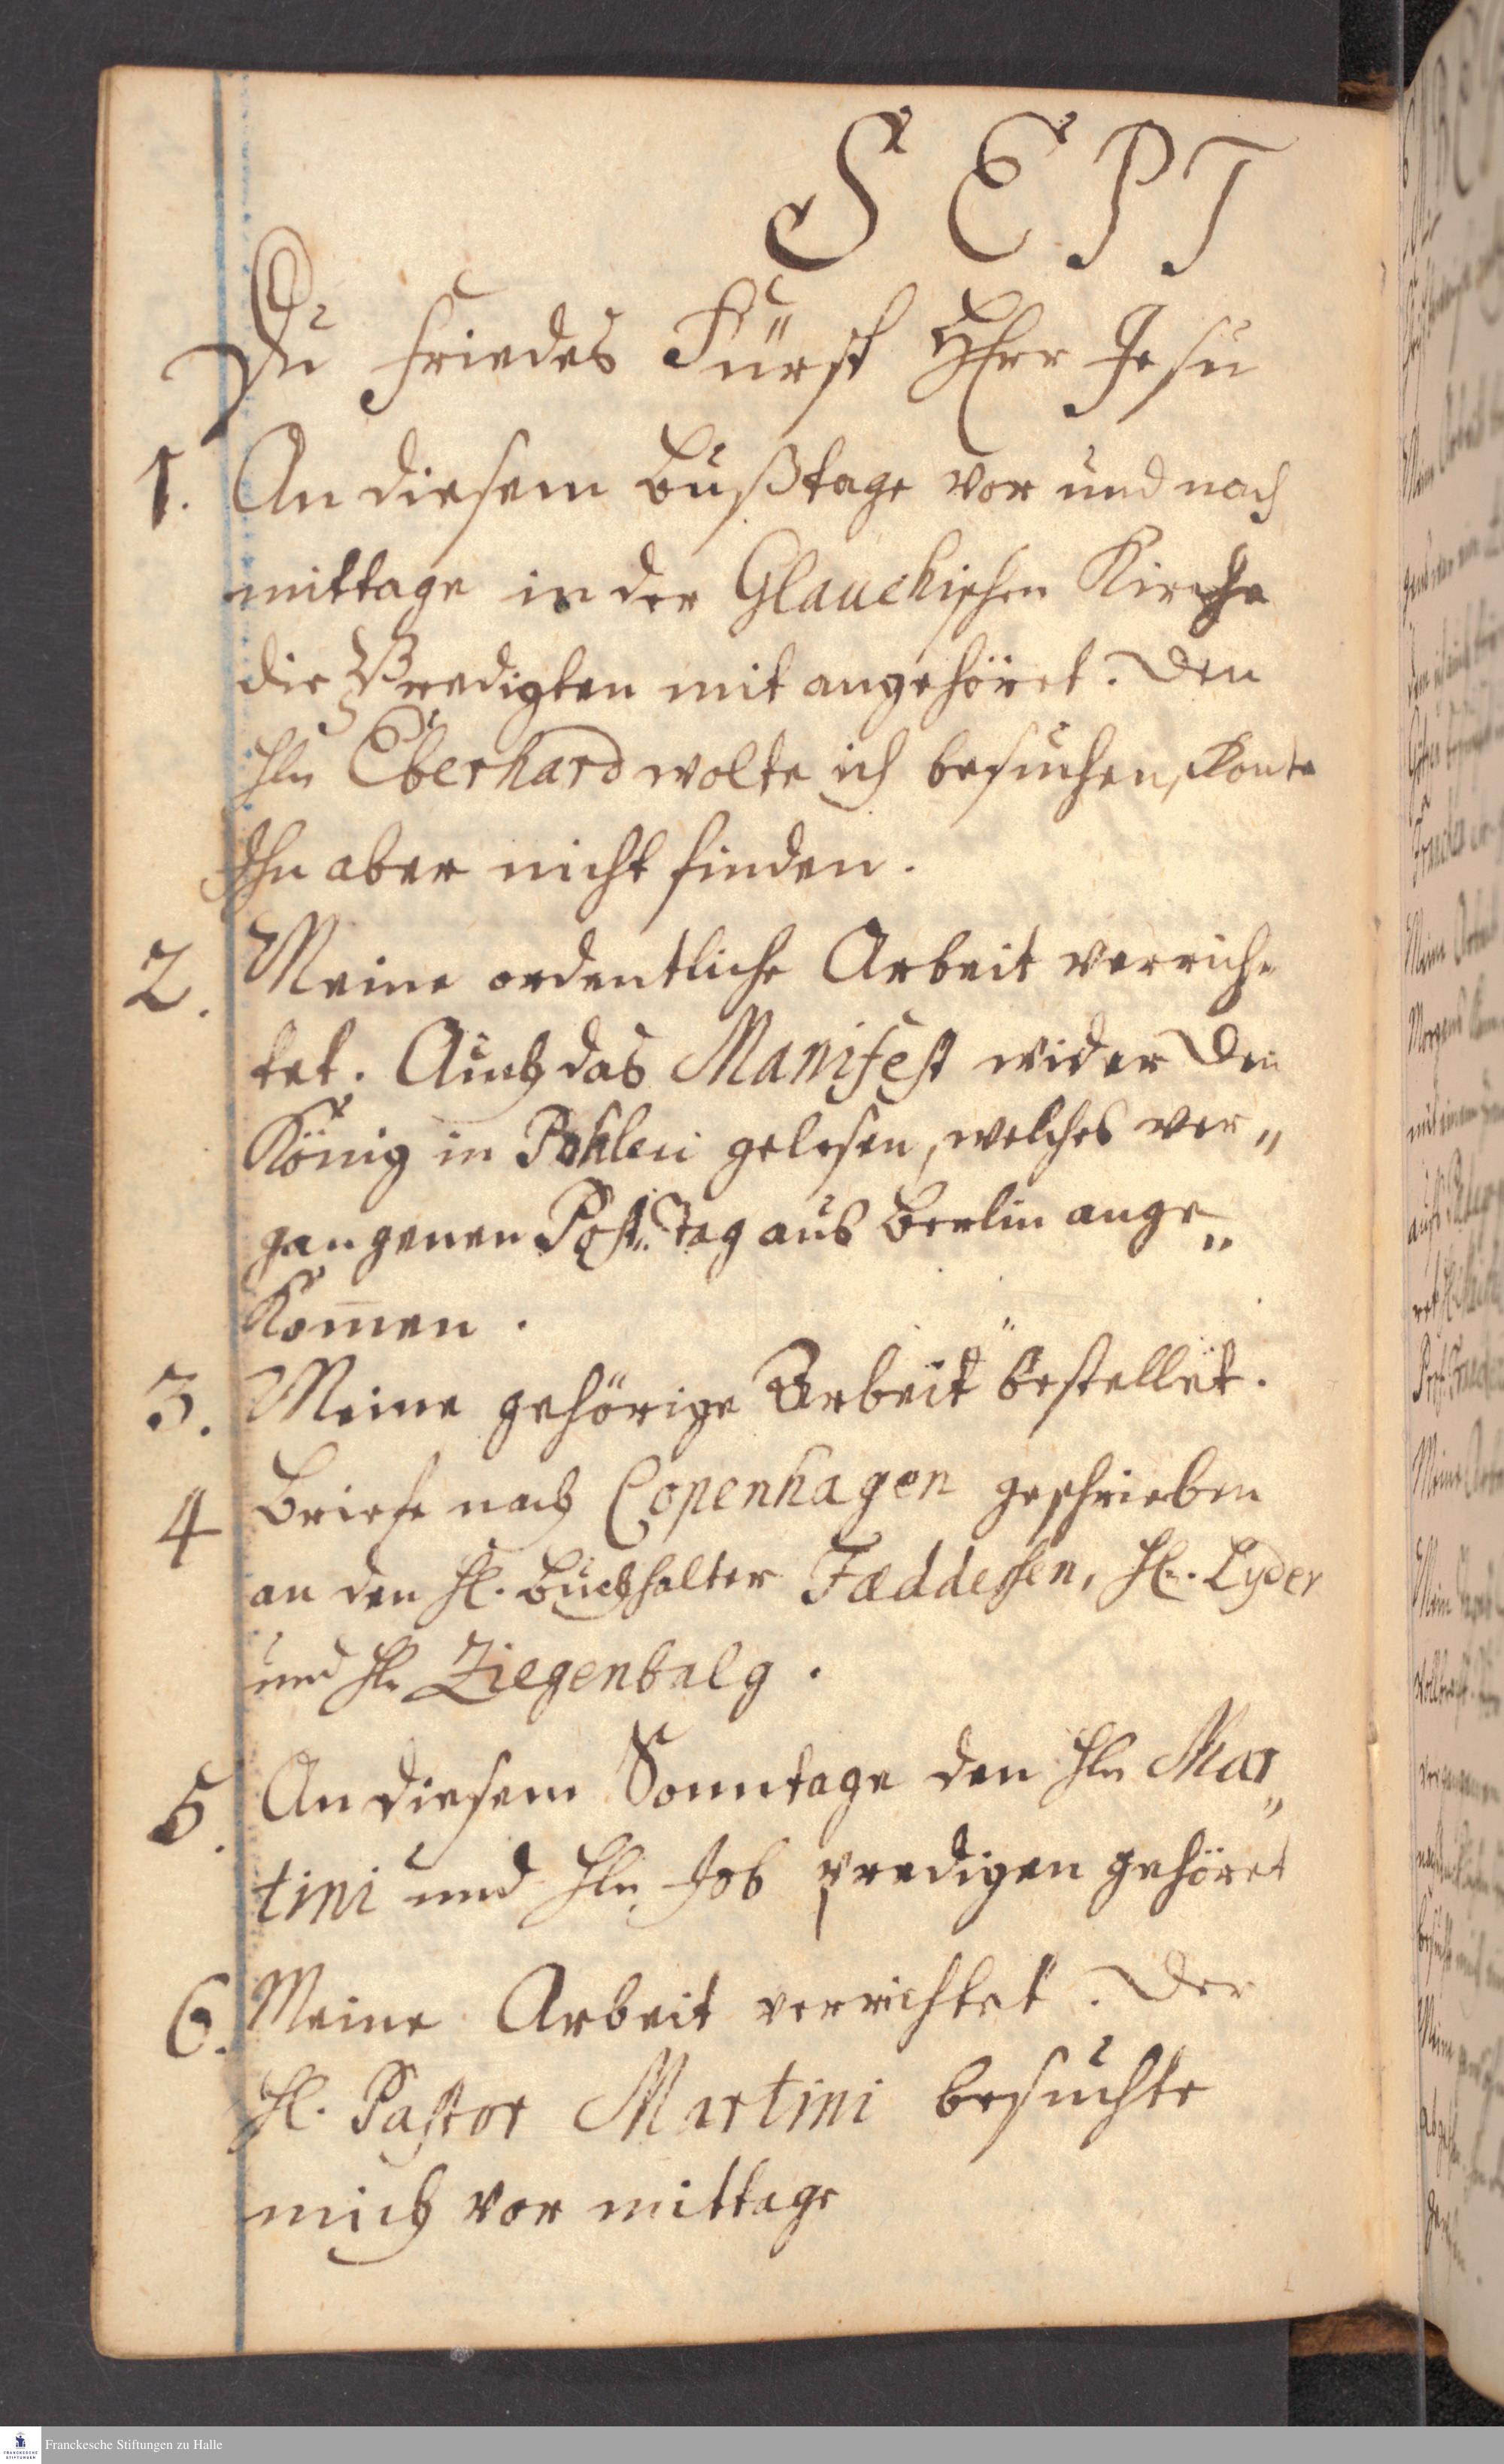 SEPT
Du Friedes Fürst HErr Jesu
1. An diesem bußtage vor und nach
mittage in der Glauchischen Kirche
die Predigten mit angehöret. Den
Hln Eberhard wolte ich besuchen, konte
Ihn aber nicht finden.
2. Meine ordentliche Arbeit verrich„
tet. Auch das Manifest wider den
König in Pohlen gelesen, welches ver„
gangenen Post„tag aus Berlin ange„
kom̅en.
3. Meine gehörige Arbeit bestellet.
4 Briefe nach Copenhagen geschrieben
an den Hl. Buchhalter Fæddersen, Hl. Lyder
und Hln Ziegenbalg.
5. An diesem Sonntage den Hln Mar„
tini und Hln Job predigen gehöret
6. Meine Arbeit verrichtet. Der
Hl. Pastor Martini besuchte
mich vor mittage
Franckesche Stiftungen zu Halle